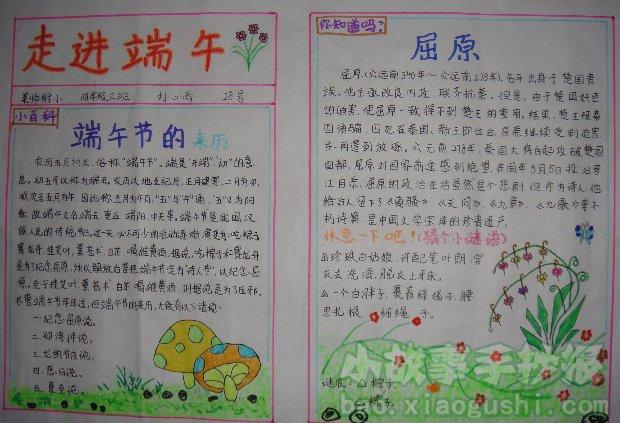 走进端午
莱师附小 四年级三班 28号
小百科
端午节的来历
农历五月初五，俗称"端午节"，端是"开端"、"初"的意
思。初五可以称为端五。农历以地支纪月，正月建寅，二月为卯，
顺次至五月为午，因此称五月为午月，"五"与"午"通，"五"又为阳
数，故端午又名端五、重五、端阳、中天等。端午节是我国汉
族人民的传统节日，这一天必不可少的活动逐渐演变为：吃粽子，
赛龙舟，挂艾叶，薰苍术、白芷，喝雄黄酒。据说，吃粽子和赛龙舟，
是为了纪念屈原，所以解放后曾把端午节定为"诗人节"，以纪念屈
原。至于挂艾叶，薰苍术、白芷，喝雄黄酒，则据说是为了压邪。
尽管端午节年年过，但端午节的来历，大致有以下诸说：
一.纪念屈原说。
三.龙的节日说。
四.恶日说。
五.夏至说。
你知道吗？
屈原
屈原(公元前340年～公元前278年)，名平，出身于楚国贵
族，他主张改良内政，联齐抗秦，但是，由于楚国奸邑
的迫害，使屈原一致得不到楚王的重用。结果，楚王被秦
国诱骗，囚死在秦国。新王即位后，屈原继续受到迫害，
并再遭到放逐。公元前278年，秦国大将白起攻破楚国
国都，屈原对国家前途感到绝望，在同年5月5日投汨罗
江自杀。屈原的政治生活当然是个悲剧，但作为诗人，他
给后人留下了《离骚》《天问》、《九章》、《九歌》等不
朽诗篇，是中国文学宝库的珍贵遗产。
休息一下吧！(猜个小谜语)
△珍珠白姑娘，许配竹叶郎，穿
衣去洗澡，脱衣上牙床。
△一个白胖子，裹着绿裙子，腰
里扎根 细绳 子。
谜底:△粽子
△粽子
小故事手抄报
bao.xiaogushi.com